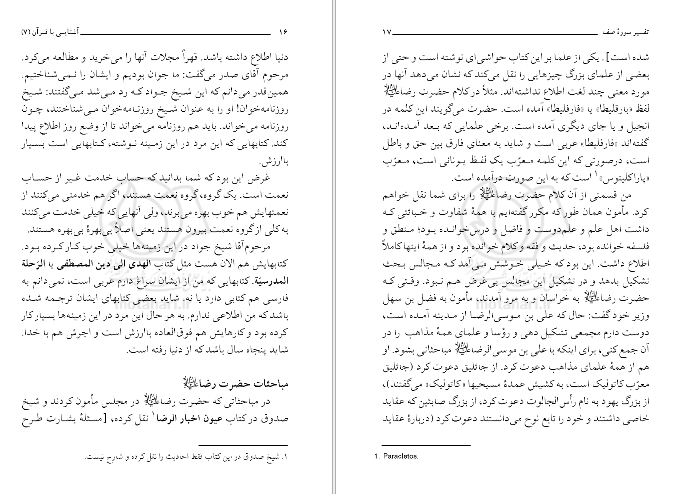 ۱۶ آشنایی با قرآن (۷)
دنیا اطلاع داشته باشد. قهراً مجلات آنها را می‌خرید و مطالعه می‌کرد.
مرحوم آقای صدر می‌گفت: ما جوان بودیم و ایشان را نمی‌شناختیم.
همین‌قدر می‌دانم که این شیخ جواد که رد می‌شد می‌گفتند: شیخ
روزنامه‌خوان! او را به عنوان شیخ روزنامه‌خوان می‌شناختند، چون
روزنامه می‌خواند. باید هم روزنامه می‌خواند تا از وضع روز اطلاع پیدا
کند. کتابهایی که این مرد در این زمینه نوشته، کتابهایی است بسیار
باارزش.
غرض این بود که شما بدانید که حساب خدمت غیر از حساب
نعمت است. یک گروه، گروه نعمت هستند، اگر هم خدمتی می‌کنند از
نعمتهایش هم خوب بهره می‌برند، ولی آنهایی که خیلی خدمت می‌کنند
به کلی از گروه نعمت بیرون هستند یعنی اصلاً بی‌بهرهٔ بی‌بهره هستند.
مرحوم آقا شیخ جواد در این زمینه‌ها خیلی خوب کار کرده بود.
کتابهایش هم الان هست مثل کتاب الهدی الی دین المصطفی یا الرّحلة
المدرسیّة. کتابهایی که من از ایشان سراغ دارم عربی است، نمی‌دانم به
فارسی هم کتابی دارد یا نه. شاید بعضی کتابهای ایشان ترجمه شده
باشد که من اطلاعی ندارم. به هر حال این مرد در این زمینه‌ها بسیار کار
کرده بود و کارهایش هم فوق‌العاده باارزش است و اجرش هم با خدا.
شاید پنجاه سال باشد که از دنیا رفته است.
مباحثات حضرت رضا علیه‌السلام
در مباحثاتی که حضرت رضا علیه‌السلام در مجلس مأمون کردند و شیخ
صدوق در کتاب عیون اخبار الرضا۱ نقل کرده، [مسئلهٔ بشارت طرح
۱. شیخ صدوق در این کتاب فقط احادیث را نقل کرده و شارح نیست.
تفسیر سورهٔ صف ۱۷
شده است]. یکی از علما بر این کتاب حواشی‌ای نوشته است و حتی از
بعضی از علمای بزرگ چیزهایی را نقل می‌کند که نشان می‌دهد آنها در
مورد معنی چند لغت اطلاع نداشته‌اند. مثلاً در کلام حضرت رضا علیه‌السلام
لفظ «بارقلیطا» یا «فارقلیطا» آمده است. حضرت می‌گویند این کلمه در
انجیل و یا جای دیگری آمده است. برخی علمایی که بعد آمده‌اند،
گفته‌اند «فارقلیطا» عربی است و شاید به معنای فارق بین حق و باطل
است، درصورتی که این کلمه معرّب یک لفظ یونانی است، معرّب
«پاراکلیتوس»۱ است که به این صورت درآمده است.
من قسمتی از آن کلام حضرت رضا علیه‌السلام را برای شما نقل خواهم
کرد. مأمون همان طور که مکرر گفته‌ایم با همهٔ شقاوت و خباثتی که
داشت اهل علم و علم‌دوست و فاضل و درس‌خوانده بود؛ منطق و
فلسفه خوانده بود، حدیث و فقه و کلام خوانده بود و از همهٔ اینها کاملاً
اطلاع داشت. این بود که خیلی خوشش می‌آمد که مجالس بحث
تشکیل بدهد و در تشکیل این مجالس بی‌غرض هم نبود. وقتی که
حضرت رضا علیه‌السلام به خراسان و به مرو آمدند، مأمون به فضل بن سهل
وزیر خود گفت: حال که علی بن موسی‌الرضا از مدینه آمده است،
دوست دارم مجمعی تشکیل دهی و رؤسا و علمای همهٔ مذاهب را در
آن جمع کنی، برای اینکه با علی بن موسی الرضا علیه‌السلام مباحثاتی بشود. او
هم از همهٔ علمای مذاهب دعوت کرد. از جاثلیق دعوت کرد (جاثلیق
معرّب کاتولیک است، به کشیش عمدهٔ مسیحیها «کاتولیک» می‌گفتند)،
از بزرگ یهود به نام رأس‌الجالوت دعوت کرد، از بزرگ صابئین که عقاید
خاصی داشتند و خود را تابع نوح می‌دانستند دعوت کرد (دربارهٔ عقاید
1. Paracletos.